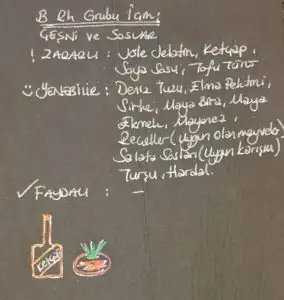 B Rh Grubu İçin:
ÇEŞNİ ve SOSLAR
! ZARARLI : Jöle Jelatin, Ketçap,
Soya Sosu, Tofu Türü
YENEBİLİR : Deniz Tuzu, Elma Pektini,
Sirke, Maya Bira, Maya
Ekmek, Mayonez,
Reçeller (Uygun olan meyveler)
Salata Sosları (Uygun karışım)
Turşu, Hardal.
✓ FAYDALI : –
KETÇAP